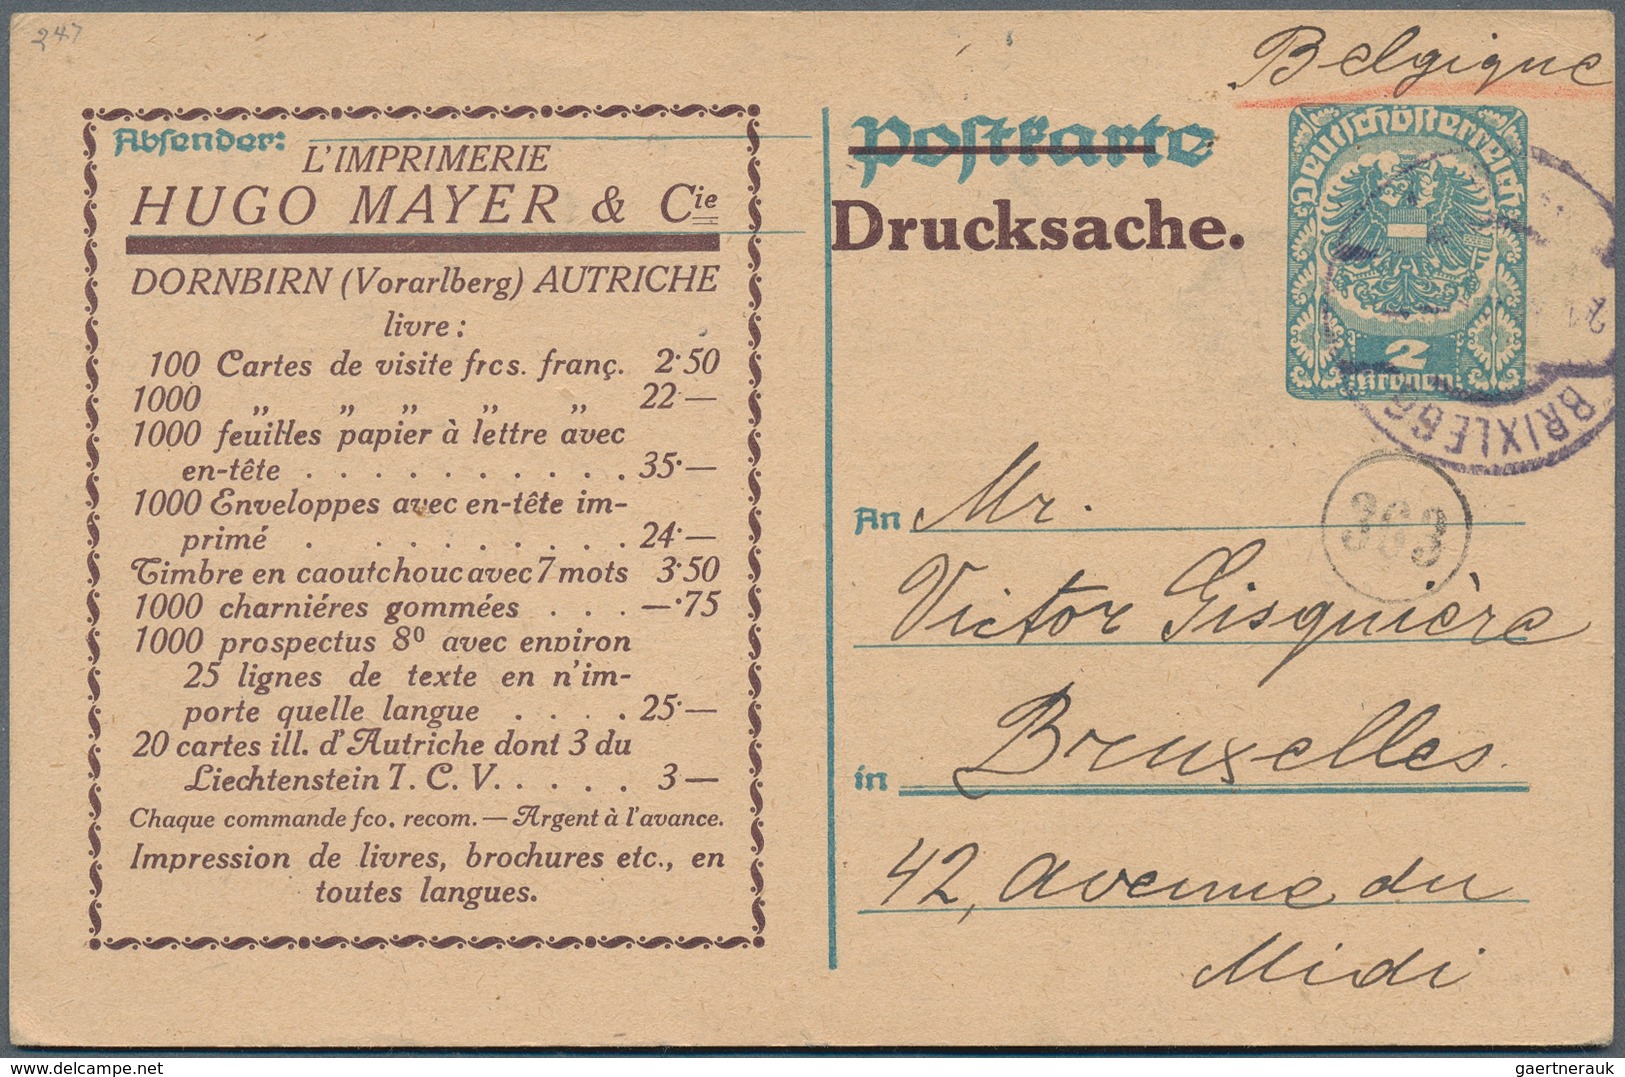 247
Belgique
Absender:
L'IMPRIMERIE
HUGO MAYER & Cie
DORNBIRN (Vorarlberg) AUTRICHE
livre:
100 Cartes de visite frcs. franç. 2·50
1000 „ „ „ „ „ 22 —
1000 feuilles papier à lettre avec
en-tête . . . . . . . . . . 35·—
1000 Enveloppes avec en-tête im-
primé . . . . . . . . . 24·—
Timbre en caoutchouc avec 7 mots 3·50
1000 charniéres gommées . . . —·75
1000 prospectus 8⁰ avec environ
25 lignes de texte en n'im-
porte quelle langue . . . . 25·—
20 cartes ill. d'Autriche dont 3 du
Liechtenstein T. C. V. . . . . 3 —
Chaque commande fco. recom. — Argent à l'avance.
Impression de livres, brochures etc., en
toutes langues.
Postkarte
Drucksache.
Deutschösterreich
2
Kronen
BRIXLEGG
363
An Mr.
Victor Gisquière
in Bruxelles.
42, avenue du
Midi
delcampe.net
gaertnerauk